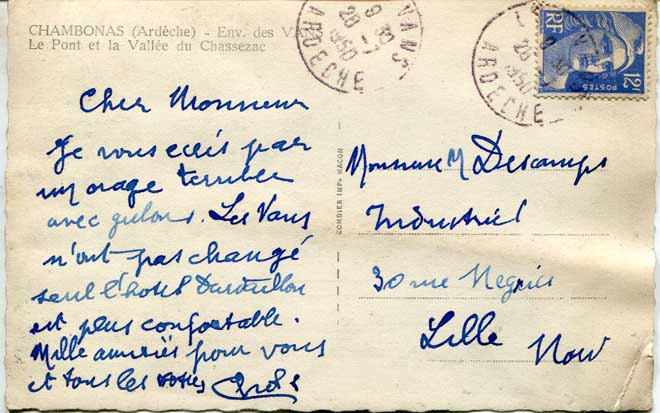 CHAMBONAS (Ardèche) - Env. des VA
Le Pont et la Vallée du Chassezac
Cher Monsieur
Je vous écris par
un orage terrible
avec . Les Vans
n'ont pas changé
seul l'hotel Dardaillon
est plus confortable.
Mille amitiés pour vous
et tous les vôtres
COMBIER IMP. MACON
LES VANS
ARDECHE
1950
RF
12F
POSTES
VANS
ARDECHE
1950
Monsieur M Descamps
Industriel
30 rue Négrier
Lille Nord